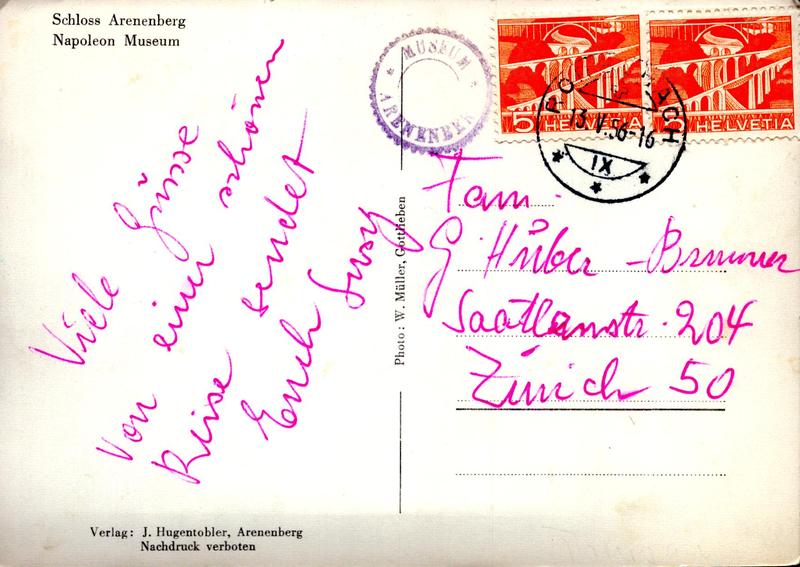 Schloss Arenenberg
Napoleon Museum
MUSEUM
ARENENBERG
5 HELVETIA
5 HELVETIA
13.V.56-16
IX
Viele Grüsse
von einer schönen
Reise sendet
Euch Susy
Photo: W. Müller, Gottlieben
Fam.
G. Huber-Brunner
Saatlenstr. 204
Zürich 50
Verlag: J. Hugentobler, Arenenberg
Nachdruck verboten